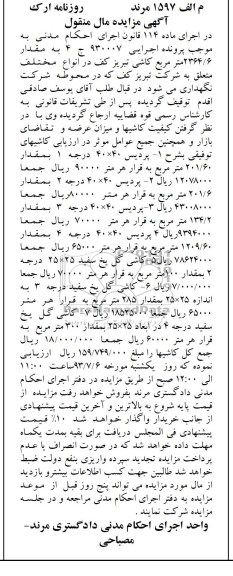 م الف ۱۵۹۷ مرند روزنامه ارک
آگهی مزایده مال منقول
در اجرای ماده ۱۱۴ قانون اجرای احکام مدنی به
موجب پرونده اجرایی ۹۳۰۰۰۷ ج ۴ به مقدار
۲۳۶۴/۶متر مربع کاشی تبریز کف در انواع مختلف
متعلق به شرکت تبریز کف که در محوطه شرکت
نگهداری می شود در قبال طلب آقای یوسف صادقی
اقدم توقیف گردیده پس از طی تشریفات قانونی به
کارشناس رسمی قوه قضاییه ارجاع گردیده وی با در
نظر گرفتن کیفیت کاشیها و میزان عرضه و تقاضای
بازار و همچنین جمیع عوامل موثر در ارزیابی کاشیهای
توقیفی بشرح ۱- پردیس ۴۰*۴۰ درجه ۱ بمقدار
۲۰۱/۶۰ متر مربع به قرار هر متر ۹۰۰۰۰ ریال جمعا
۱۲۰۷۸۰۰۰ ریال ۲- پردیس ۴۰*۴۰ درجه ۲ بمقدار
۲۰۱/۶ متر مربع به قرار هر متر ۸۰۰۰۰ریال جمعا
۴۳۰۰۸۰۰۰ ریال ۳-پردیس ۴۰*۴۰ درجه ۳ بمقدار
۱۳۴/۲ متر مربع به قرار هر متر ۷۰۰۰۰ ریال جمعا
۹۳۹۴۰۰۰ریال ۴ پردیس ۴۰*۴۰ درجه ۴ بمقدار
۱۲۰۹/۶۰ متر مربع به قرار هر متر ۶۵۰۰۰ ریال جمعا
۷۸۶۲۴۰۰۰ ریال۵- کاشی گل یخ سفید ۲۵*۲۵ درجه
۲ بمقدار ۱۰۰متر مربع به قرار هر متر ۷۰۰۰۰ ریال جمعا
۷/۰۰۰/۰۰۰ ریال ۶- کاشی گل یخ سفید درجه ۳ به
اندازه ۲۵*۲۵ بمقدار ۲۸۵ متر مربع به قرار هر متر
۶۵۰۰۰ ریال جمعا ۱۸۵۲۵۰۰۰ ریال ۷- کاشی گل یخ
سفید درجه ۴ در ابعاد ۲۵*۲۵ بمقدار ۳۰۰ متر مربع به
قرار هر متر ۶۰۰۰۰ ریال جمعا ۱۸/۰۰۰/۰۰۰ ریال
جمع کل کاشیها را مبلغ ۱۵۹/۷۴۹/۰۰۰ ریال ارزیابی
نموده که روز یکشنبه مورخه ۹۳/۷/۶ساعت ۱۱:۰۰
الی ۱۲:۰۰ صبح از طریق مزایده در دفتر اجرای احکام
مدنی دادگستری مرند بفروش خواهد رفت مزایده از
قیمت پایه شروع به بالاترین و آخرین قیمت پیشنهادی
از جانب خریدار واگذار خواهد شد ۱۰٪ قیمت
پیشنهادی فی المجلس دریافت برای بقیه بمدت یکماه
مهلت داده خواهد شد که در صورت انصراف یا عدم
پرداخت مزایده تجدید سپرده واریزی بنفع دولت ضبط
خواهد شد طالبین جهت کسب اطلاعات بیشترو بازدید
از مال مورد مزایده می تواند پنج روز قبل از موعد
مزایده به دفتر اجرای احکام مدنی مراجعه و در جلسه
مزایده شرکت نمایند .
واحد اجرای احکام مدنی دادگستری مرند-
مصباحی